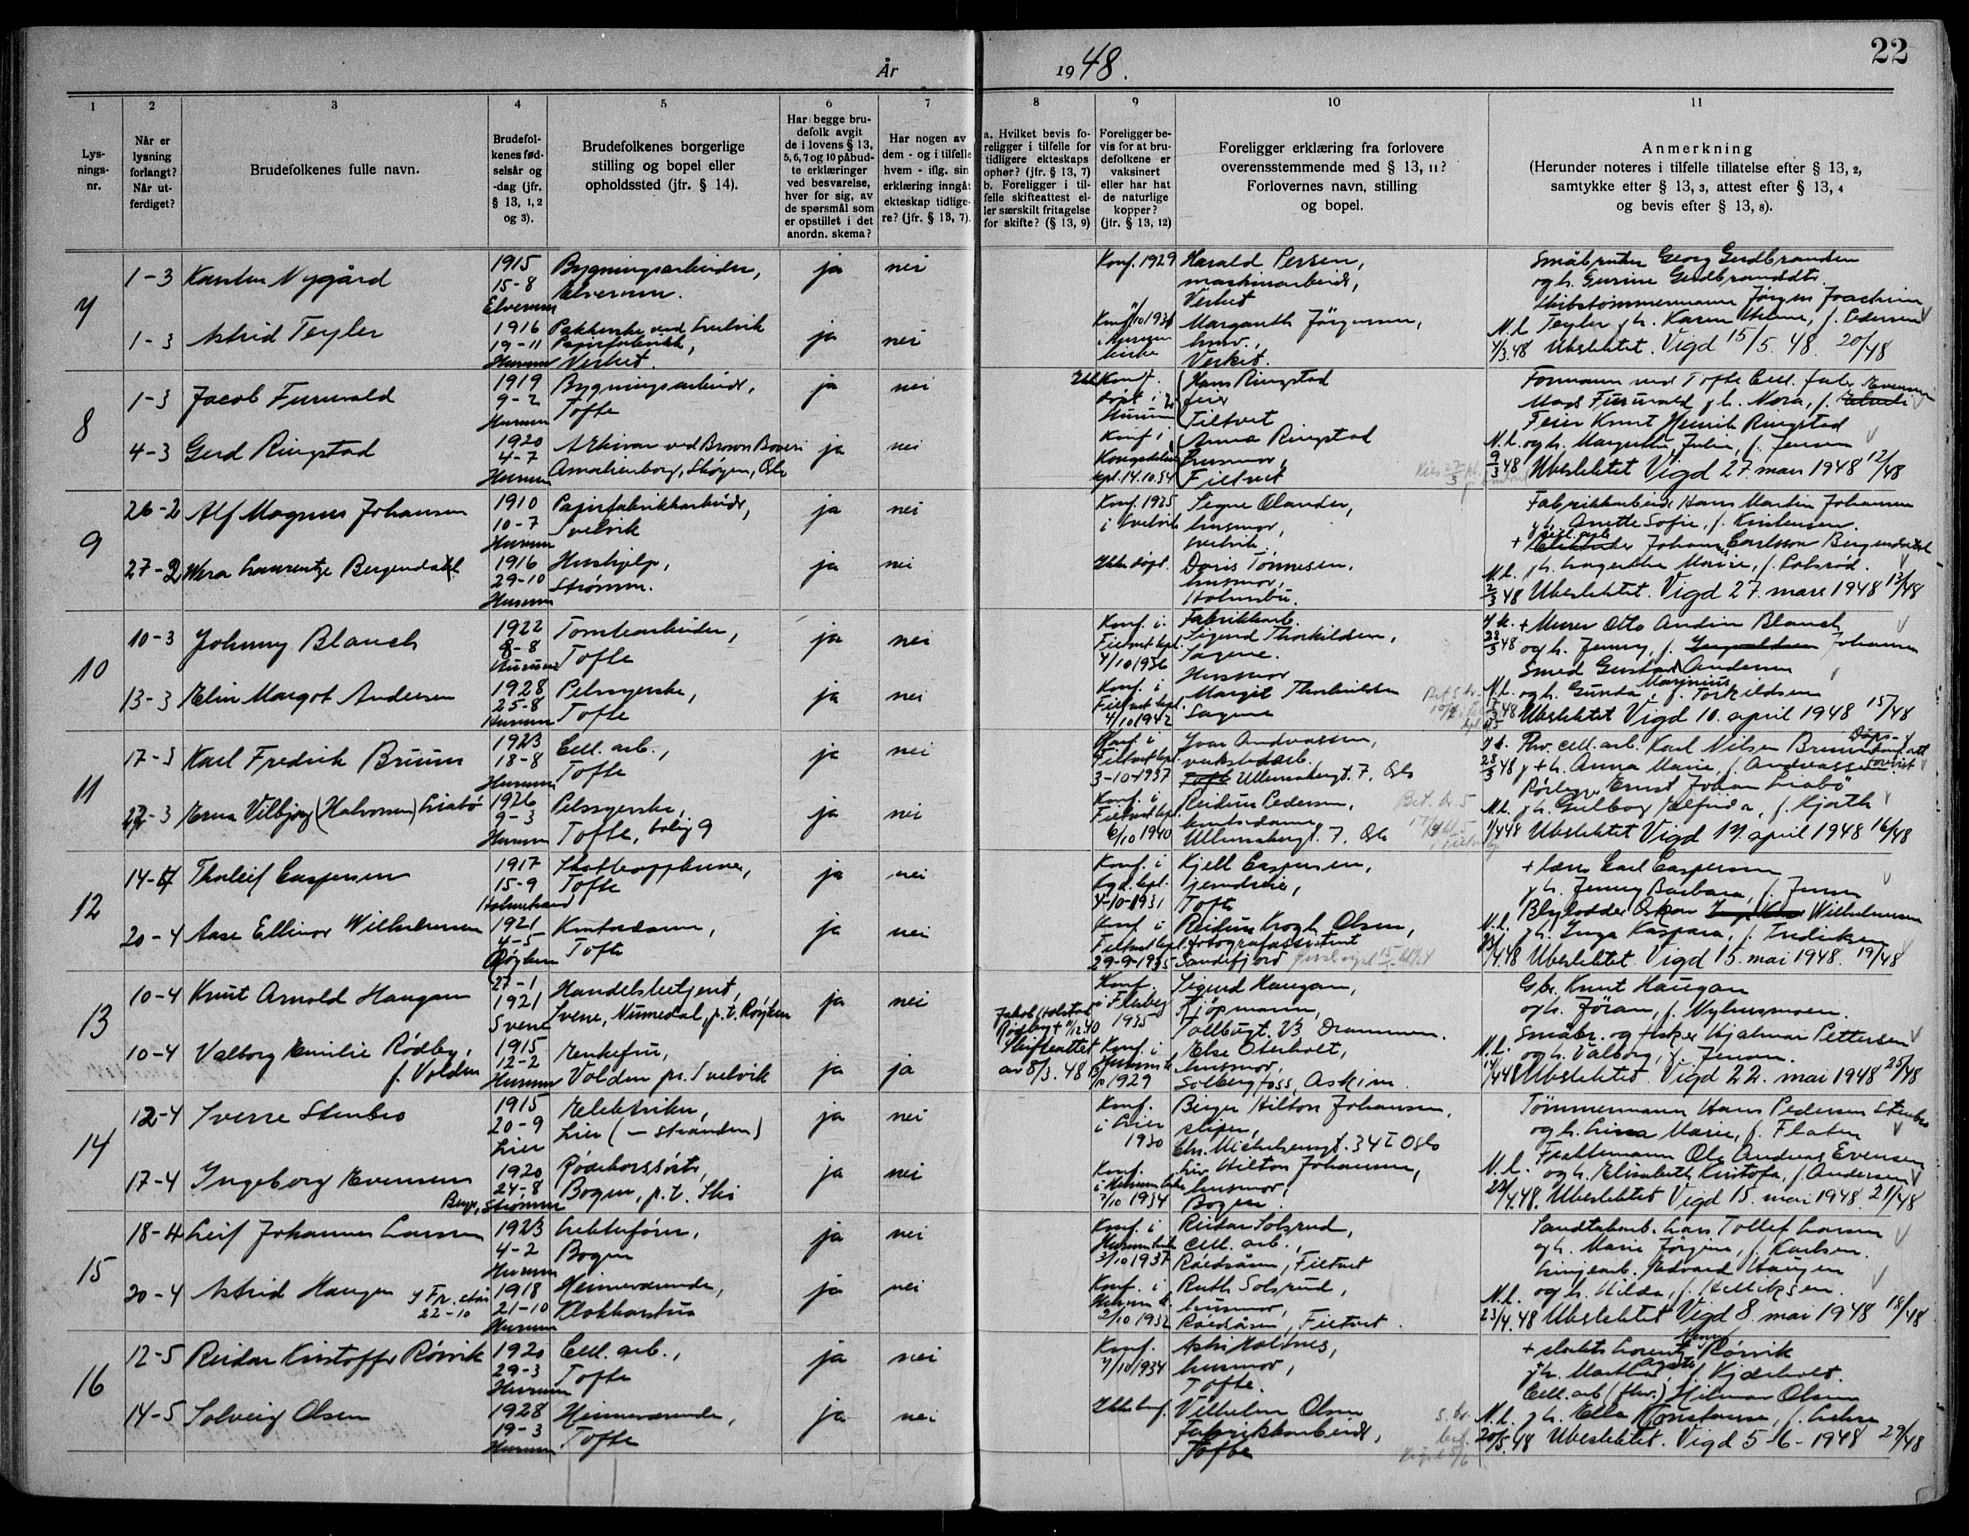 År 1948.
22
1 2 3 4 5 6 7 8 9 10 11
Lys-
nings-
nr.
Når er
lysning
forlangt?
Når ut-
ferdiget?
Brudefolkenes fulle navn.
Brudefol-
kenes fød-
selsår og
-dag (jfr.
§ 13, 1, 2
og 3).
Brudefolkenes borgerlige
stilling og bopel eller
opholdssted (jfr. § 14).
Har begge bru-
defolk avgit
de i lovens § 13,
5, 6, 7 og 10 påbud-
te erklæringer
ved besvarelse,
hver for sig, av
de spørsmål som
er opstillet i det
anordn. skema?
Har nogen av
dem - og i tilfelle
hvem - iflg. sin
erklæring inngått
ekteskap tidlige-
re? (jfr. § 13, 7).
a. Hvilket bevis fo-
religger i tilfelle for
tidligere ekteskaps
ophør? (jfr. § 13, 7)
b. Foreligger i til-
felle skifteattest el-
ler særskilt fritagelse
for skifte? (§ 13, 9)
Foreligger be-
vis for at bru-
defolkene er
vaksinert
eller har hat
de naturlige
kopper?
(jfr. § 13, 12)
Foreligger erklæring fra forlovere
overensstemmende med § 13, 11?
Forlovernes navn, stilling
og bopel.
Anmerkning
(Herunder noteres i tilfelle tillatelse efter § 13, 2,
samtykke efter § 13, 3, attest efter § 13, 4
og bevis efter § 13, 8).
7
1-3 Karsten Nygård
1915
15-8
Elverum
Bygningsarbeider,
Elverum.
ja nei
Konf. 1929
Harald Persen,
maskinarbeid,
Verket
Småbruker Georg Gudbransen
1-3 Astrid Teyler
1916
19-11
Hurum
Pakkerske ved Svelvik
Papirfabrikk,
Verket.
ja nei
Margareth Jörgensen,
husm.,
Verket.
N.l.
4/3.48 Ubeslektet. Vigd 15/5. 48. 20/48
8
1-3 Jacob Furuvald
1919
9-2
Hurum
Bygningsarbeider,
Tofte
ja nei
Hans Ringstad
feier
Filtvet
4-3 Gerd Ringstad
1920
4-7
Hurum
Arkivar ved Brown Boveri
Amalienborg, Skøyen, Oslo
ja nei
Anna Ringstad
husmor,
Filtvet
Feier Knut Henrik Ringstad
N.l. og h. Margrethe Julie f. Jensen
9/3 48 Ubeslektet Vigd 27. mars 1948 12/48
9
26-2 Alf Magnus Johansen
1910
10-7
Hurum
Papirfabrikkarbeider,
Svelvik
ja nei
Konf. 1925
i Svelvik
Signe Olander,
husmor,
Svelvik
Fabrikkarbeider Hans Martin Johansen
og h. Anette Sofie, f. Kristensen.
27-2 Wera Laurentze Bergendahl
1916
29-10
Hurum
Hushjelp,
Strømm.
ja nei
Ikke døpt.
Doris Tønnesen,
husmor,
Holmsbu.
N.l.
2/3 48 Ubeslektet. Vigd 27. mars 1948 13/48
10
10-3 Johnny Blauch
1922
8-8
Hurum
Tomtearbeider,
Tofte
ja nei
Konf. i
Filtvet kpl.
4/10 1936
Fabrikkarb.
Sigurd Thorkildsen,
Sagene.
+ Murer Otto Andin Blauch
og h. Jenny, f. Johansen
13-3 Elin Margot Andersen
1928
25-8
Hurum
Pelssyerske,
Tofte
ja nei
Konf. i
Filtvet kpl.
4/10 1942
Husmor
Margit Thorkildsen
Sagene
Smed Gustav Andersen
N.l. og h. Gunda Marinius f. Torkildsen
Ubeslektet Vigd 10. april 1948 15/48
11
17-3 Karl Fredrik Bruun
1923
18-8
Hurum
Cell. arb.,
Tofte
ja nei
Konf. i
Filtvet kpl.
3-10-1937
Ivar Andreassen,
verkstedarb.
Tofte Ullensakergt. 7. Oslo
Fhv. cell. arb. Karl Nilsen Bruun
+ h. Anna Marie, f. Andreassen.
22-3 Erna Vilbjørg (Halvorsen) Liabø
1926
9-3
Hurum
Pelssyerske,
Tofte, bolig 9
ja nei
Konf. i
Filtvet kpl.
6/10 1940
Reidun Pedersen,
kontordame,
Ullensakergt. 7. Oslo
Rørlegger Ernst Johan Liabö
N.l. og h. Gulborg Elfrida, f. Hjorth
1/4 48 Ubeslektet Vigd 17. april 1948 16/48
12
14-4 Tholeif Caspersen
1917
15-9
Holmestrand
Skatteoppkrever,
Tofte
ja nei
Konf. i
4-10-1931
Kjell Caspersen,
Tofte
+ lærer Carl Caspersen
og h. Jenny Barbara, f. Jensen
20-4 Aase Ellinor Wilhelmsen
1921
4-5
Røyken
Kontordame,
Tofte
ja nei
Konf. i
Filtvet kpl.
29-9-1935
Reidun Krogh Olsen,
fotografassistent
Sandefjord
Blylodder Oskar Wilhelmsen
N.l. og h. Inga Kaspara, f. Fredriksen
23/4.48 Ubeslektet. Vigd 15. mai 1948. 19/48
13
10-4 Knut Arnold Haugan
27-1
1921
Svene
Handelsbetjent,
Svene, Numedal, p.t. Røyken
ja nei
Konf.
i Flesberg
1935
Sigurd Haugan,
Kjøpmann,
Tollbugt. 73 Drammen.
Gbr. Knut Haugan
og h. Jöran, f. Myhusmoen.
10-4 Valborg Emilie Rødby,
f. Volden
1915
12-2
Hurum
Enkefru,
Volden pr. Svelvik
ja ja
Skifteattest
av 8/3. 48
Konf. i
Hurum k.
1929
Else Oterholt,
husmor,
Solbergfoss, Askim.
Småbr. og fisker Hjalmar Pettersen
N.l. og h. Valborg, f. Jensen.
14/4 48 Ubeslektet. Vigd 22. mai 1948 25/48
14
12-4 Sverre Stenbro
1915
20-9
Lier
Elektriker,
Lier (- stranden)
ja nei
Konf.
i Lier
1930
Birger Hilton Johansen,
sliper,
Chr. Michelsensgt. 34 I Oslo
Tømmermann Hans Pedersen Stenbro
og h. Lina Marie, f. Flaten
17-4 Ingeborg Evensen
1920
24-8
Berger, Strømm
Rødekorssøster,
Bogen, p.t. Ski
ja nei
Konf.
i Hurum kirke
7/10 1934
Liv Hilton Johansen,
husmor,
Bogen.
Fraktemann Ole Andreas Evensen
N.l. og h. Elisabeth Kristofa, f. Andersen
22/4.48. Ubeslektet. Vigd 15. mai 1948. 21/48
15
18-4 Leif Johannes Larsen
1923
4-2
Hurum
Lektefører,
Bogen
ja nei
Konf. i
Hurum kirke
3/10 1937
Reidar Solsrud,
cell. arb.,
Rødsåsen, Filtvet
Sandtakarb. Lars Tollef Larsen
og h. Marie Jørgine, f. Karlsen.
20-4 Astrid Haugen
22-10
1918
21-10
Hurum
Heimeværende,
Klokkarstua
ja nei
Konf. i
Hurum k.
2/10 1932
Ruth Solsrud,
husmor,
Rødsåsen, Filtvet.
Linjearb. Edvard Haugen
N.l. og h. Hilda, f. Helliksen.
23/4.48 Ubeslektet Vigd 8. mai 1948 18/48
16
12-5 Reidar Kristoffer Rørvik
1920
29-3
Hurum
Cell. arb.,
Tofte
ja nei
Konf.
7/10 1934
Aslri Holtnes,
husmor,
Tofte.
14-5 Solveig Olsen
1928
19-3
Hurum
Heimeværende,
Tofte
ja nei
Ikke konf.
Vilhelm Olsen
Fabrikkarbeider,
Tofte
Cell. arb. (fhv.) Hilmar Olsen
N.l. og h. Ella Konstanse, f. Lehre
20/5.48 Ubeslektet. Vigd 5-6-1948 29/48